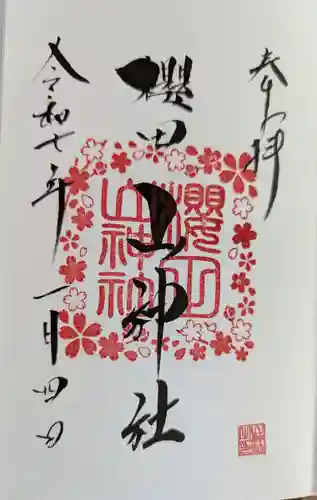 奉拝
櫻田山神社
櫻田山神社
令和七年一月四日